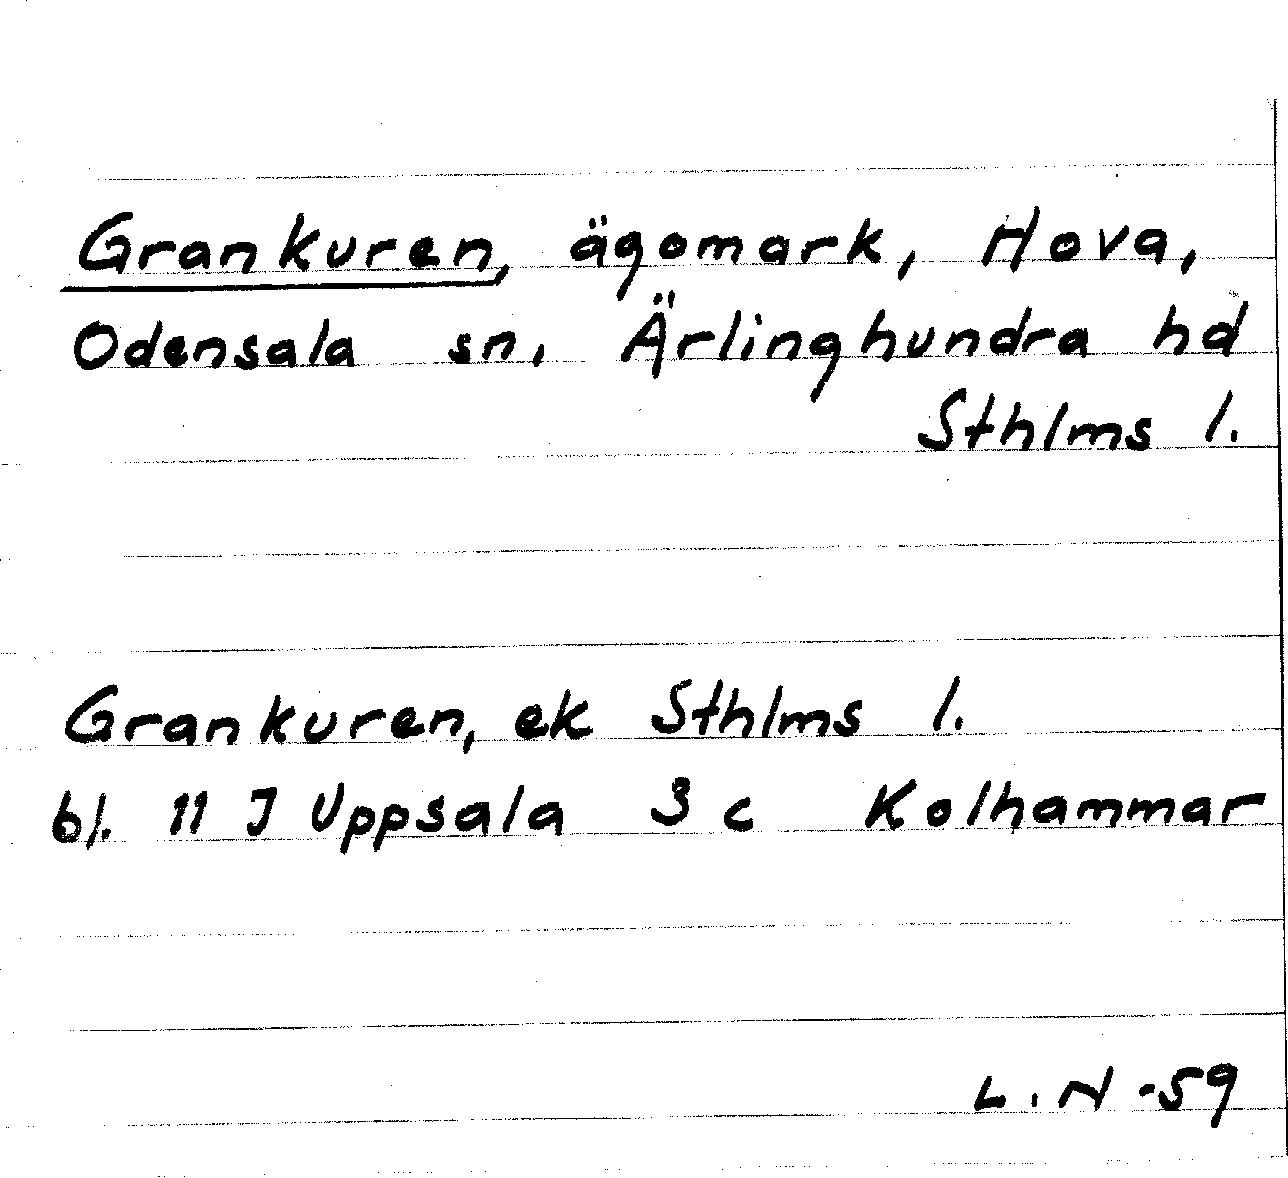 Grankuren, ägomark, Hova,
Odensala sn, Ärlinghundra hd
Sthlms l.
Grankuren, ek Sthlms l.
bl. 11 J Uppsala 3 c Kolhammar
L.N -59